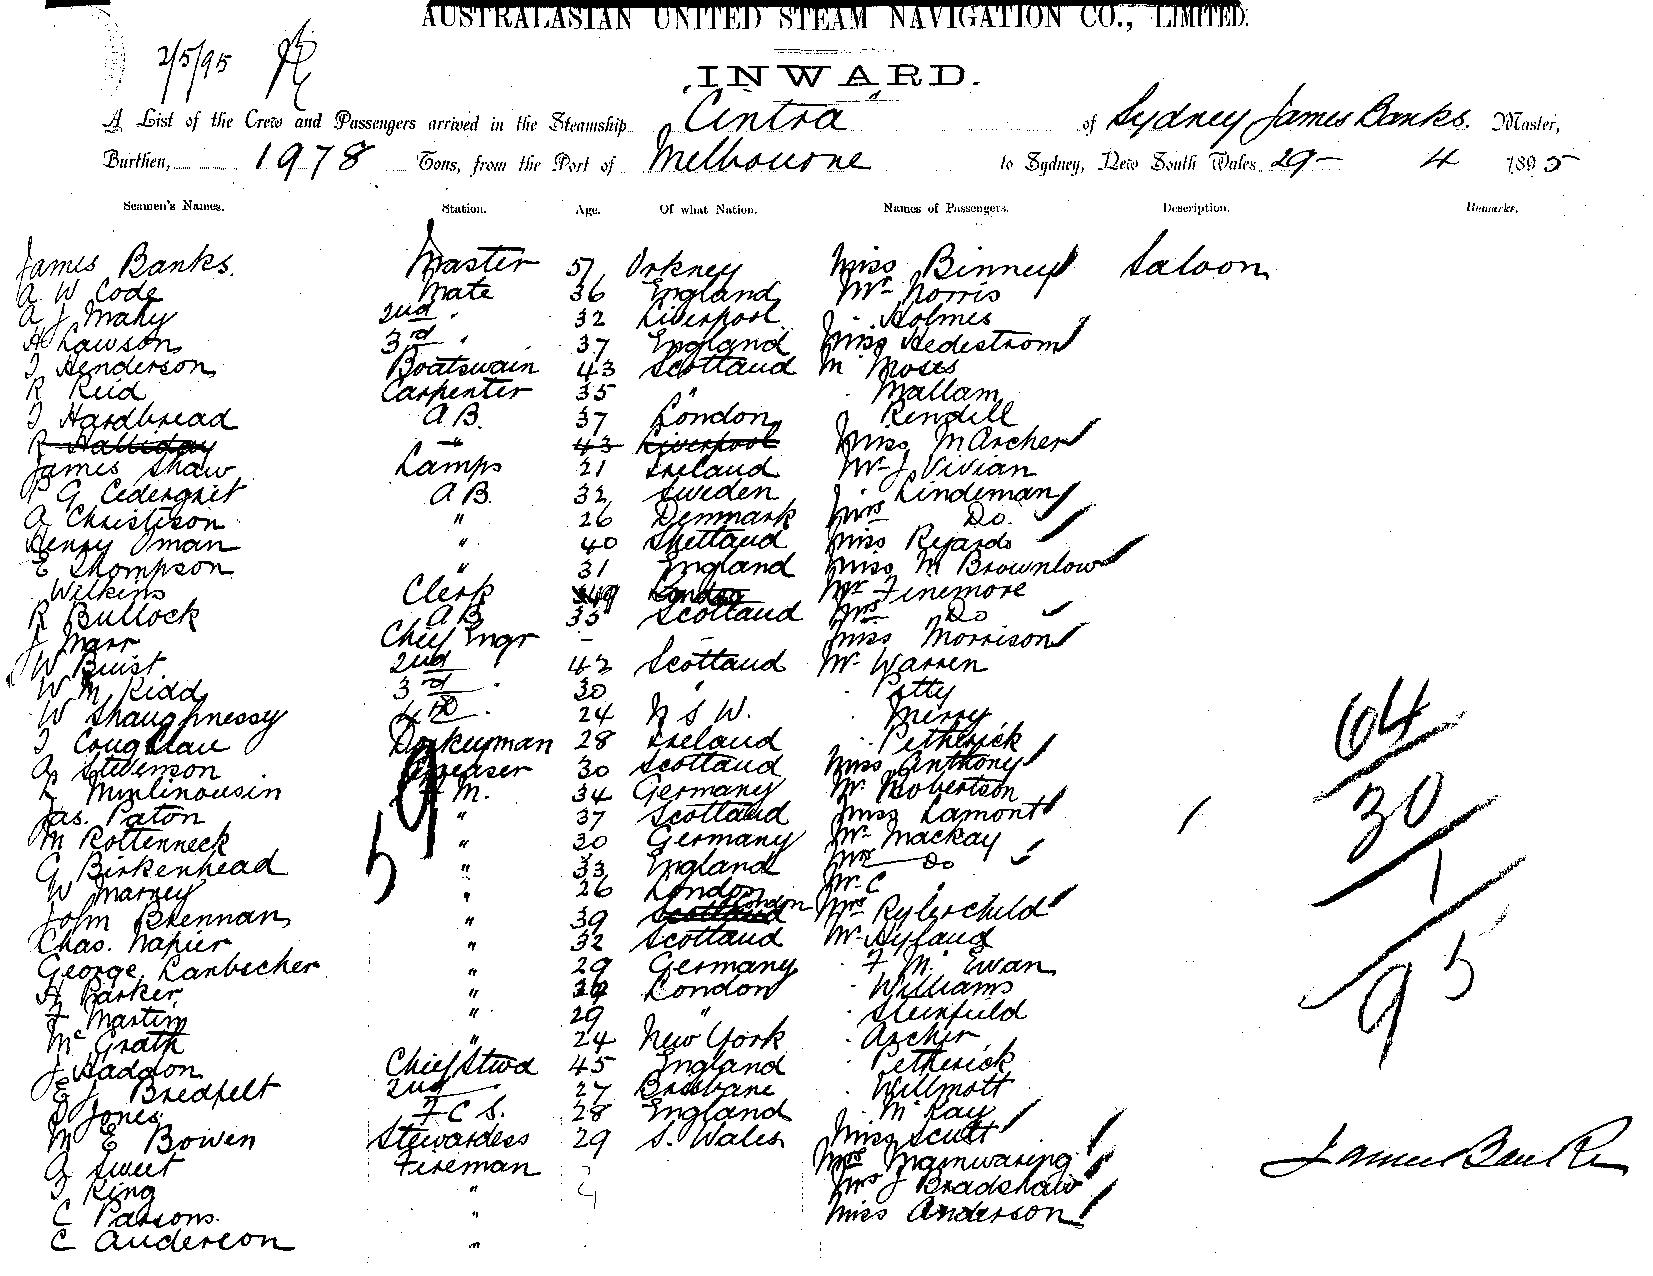 AUSTRALASIAN UNITED STEAM NAVIGATION CO., LIMITED.
2/5/95
INWARD.
A List of the Crew and Passengers arrived in the Steamship Cintra of Sydney James Banks Master,
Burthen, 1978 Tons, from the Port of Melbourne to Sydney, New South Wales 29 - 4 1895
Seamen's Names. Station. Age. Of what Nation. Names of Passengers. Description. Remarks.
James Banks. Master 57 Orkney Miss Binney Saloon
A W Code Mate 36 England Mr Norris
A J Mahy 2nd " 32 Liverpool " Holmes
A Lawson 3rd " 37 England Miss Hedestrom
J Henderson Boatswain 43 Scotland M Moses
R Reid Carpenter 35 " Mallam
J Hardbread A.B. 37 London Rendill
R Halliday " 43 Liverpool Miss M Archer
James Shaw Lamps 21 Ireland Mr J Vivian
P G Cedergrit A B. 32 Sweden " Lindeman
A Christison " 26 Denmark Mrs Do.
Henry Oman " 40 Shetland Miss
E Thompson " 31 England Miss M Brownlow
Wilkins Clerk London Mr Finemore
R Bullock A B 35 Scotland Mrs Do
J Marr Chief Engr - Miss Morrison
W Buist 2nd 42 Scotland Mr Warren
W M Kidd 3rd " 30 " " Petty
W Shaughnessy 4th " 24 N S W. " Mirry
J Coughlan Donkeyman 28 Ireland " Petherick
A Stevenson Greaser 30 Scotland Miss Anthony
F. M. 34 Germany Mr Robertson
Jas. Paton " 37 Scotland Miss Lamont
M Rottenneck " 30 Germany Mr Mackay
G Birkenhead " 33 England Mrs Do
W Marney " 26 London Mr C "
John Brennan " 39 Scotland London Mrs Rylerchild
Chas. Napier " 32 Scotland Mr Hyland
George Lanbecher " 29 Germany " F Mc Ewan
H Parker " London " Williams
F Martin " 29 " " Steinfield
Mc Grath " 24 New York " Archer
J Haddon Chief Stwd 45 England " Petherick
E J Bredfelt 2nd 27 Brisbane " Willmott
D Jones F C S. 28 England " McKay
M E Bowen Stewardess 29 S. Wales Miss Scutt
A Sweet Fireman Mrs Mainwaring
J King " Mrs J Bradshaw
C Parsons. " Miss Anderson
C Anderson "
59
64
30
1
95
James Banks